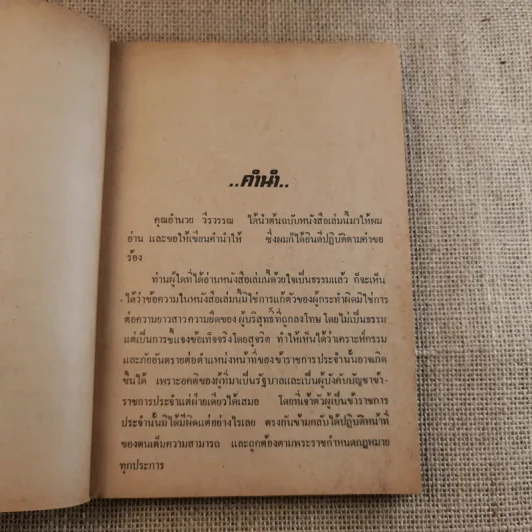 ..คำนำ..
คุณอำนวย วีรวรรณ ได้นำต้นฉบับหนังสือเล่มนี้มาให้ผม
อ่าน และขอให้เขียนคำนำให้ ซึ่งผมก็ได้ยินดีปฏิบัติตามคำขอ
ร้อง
ท่านผู้ใดที่ได้อ่านหนังสือเล่มนี้ด้วยใจเป็นธรรมแล้ว ก็จะเห็น
ได้ว่าข้อความในหนังสือเล่มนี้มิใช่การแก้ตัวของผู้กระทำผิดมิใช่การ
ต่อความยาวสาวความยืดของ ผู้บริสุทธิ์ที่ถูกลงโทษ โดยไม่เป็นธรรม
แต่เป็นการชี้แจงข้อเท็จจริงโดยสุจริต ทำให้เห็นได้ว่าเคราะห์กรรม
และภัยอันตรายต่อตำแหน่งหน้าที่ของข้าราชการประจำนั้นอาจเกิด
ขึ้นได้ เพราะอคติของผู้ที่มาเป็นรัฐบาลและเป็นผู้บังคับบัญชาข้า-
ราชการประจำแต่ฝ่ายเดียวได้เสมอ โดยที่เจ้าตัวผู้เป็นข้าราชการ
ประจำนั้นมิได้มีผิดแต่อย่างไรเลย ตรงกันข้ามกลับได้ปฏิบัติหน้าที่
ของตนเต็มความสามารถ และถูกต้องตามพระราชกำหนดกฎหมาย
ทุกประการ